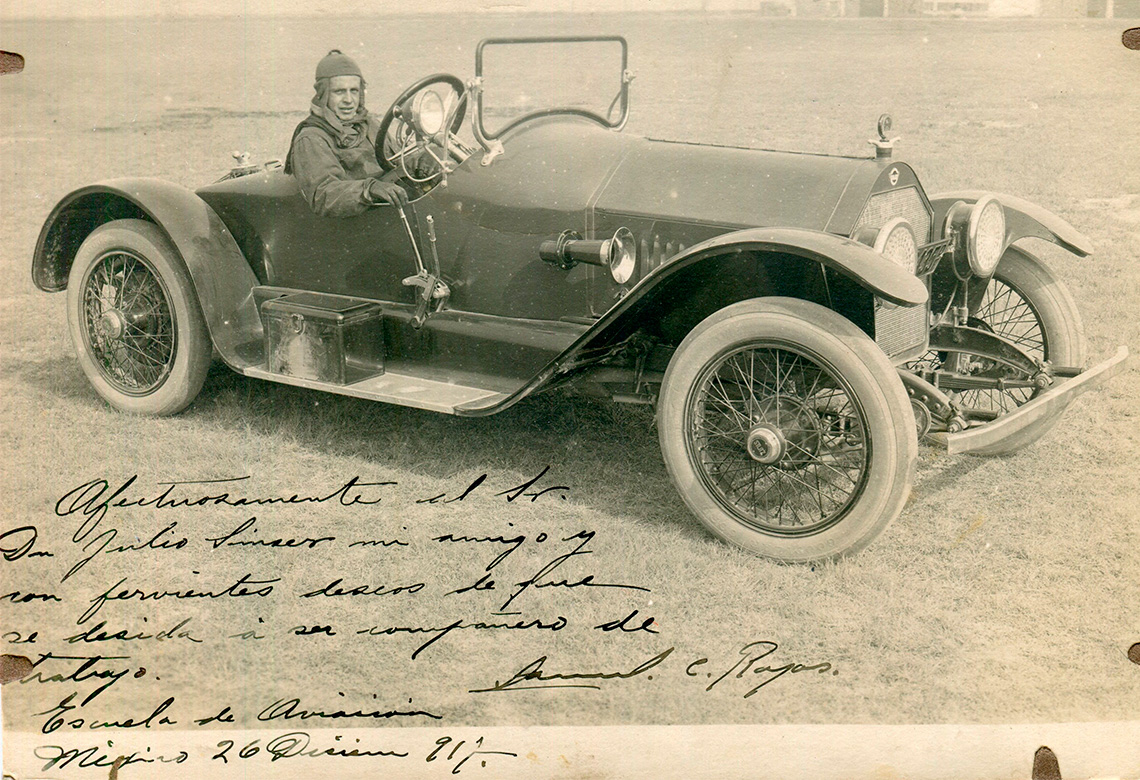 Afectuosamente al Sr.
Dn Julio Sinser mi amigo y
con fervientes deseos de que
se desida á ser compañero de
trabajo.
Samuel. C. Rojas.
Escuela de Aviación
México 26 Diciem 917.